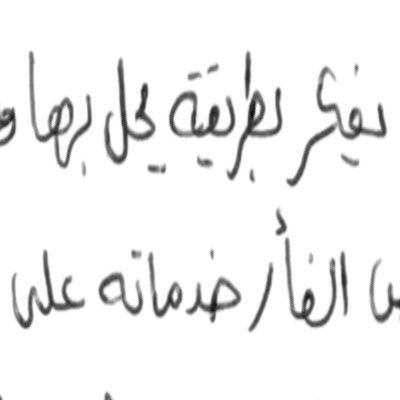 يفكر بطريقة يحل بها
الفأر خدماته على